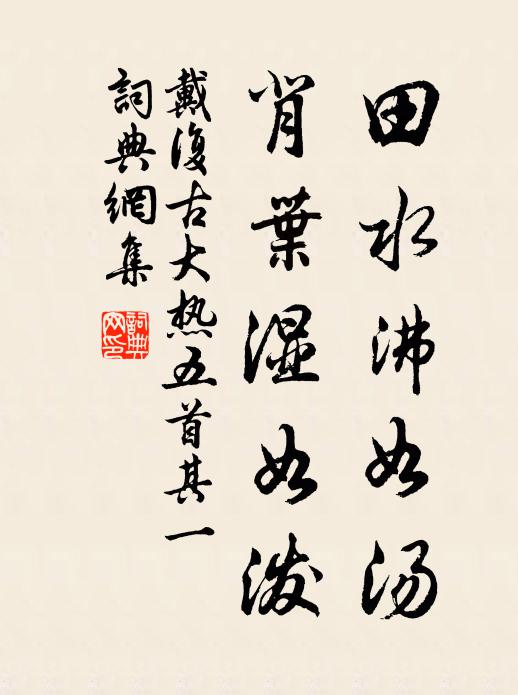 田水沸如汤
背葉湿如泼
戴復古大热五首其一
詞典網集
詞典网印